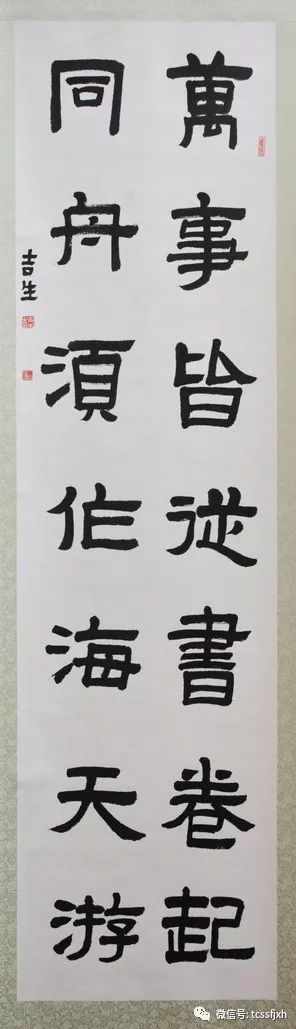 萬事皆從書卷起
同舟須作海天游
吉生
微信号: tcssfjxh